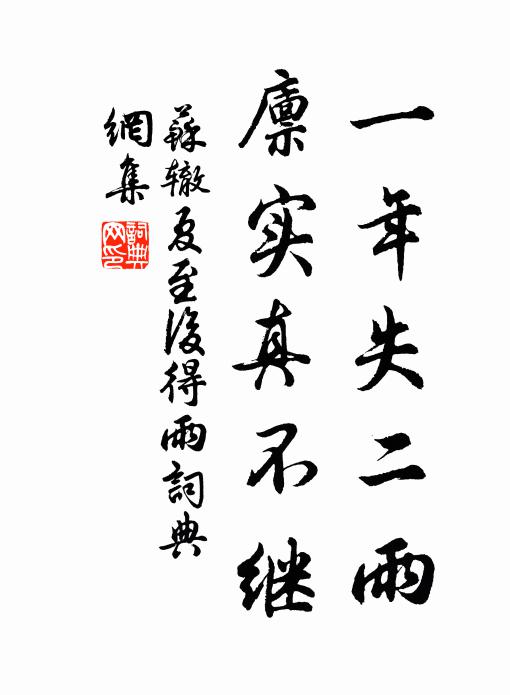 一年失二雨
廪实真不继
蘇辙夏至後得雨詞典
網集
詞典
网印